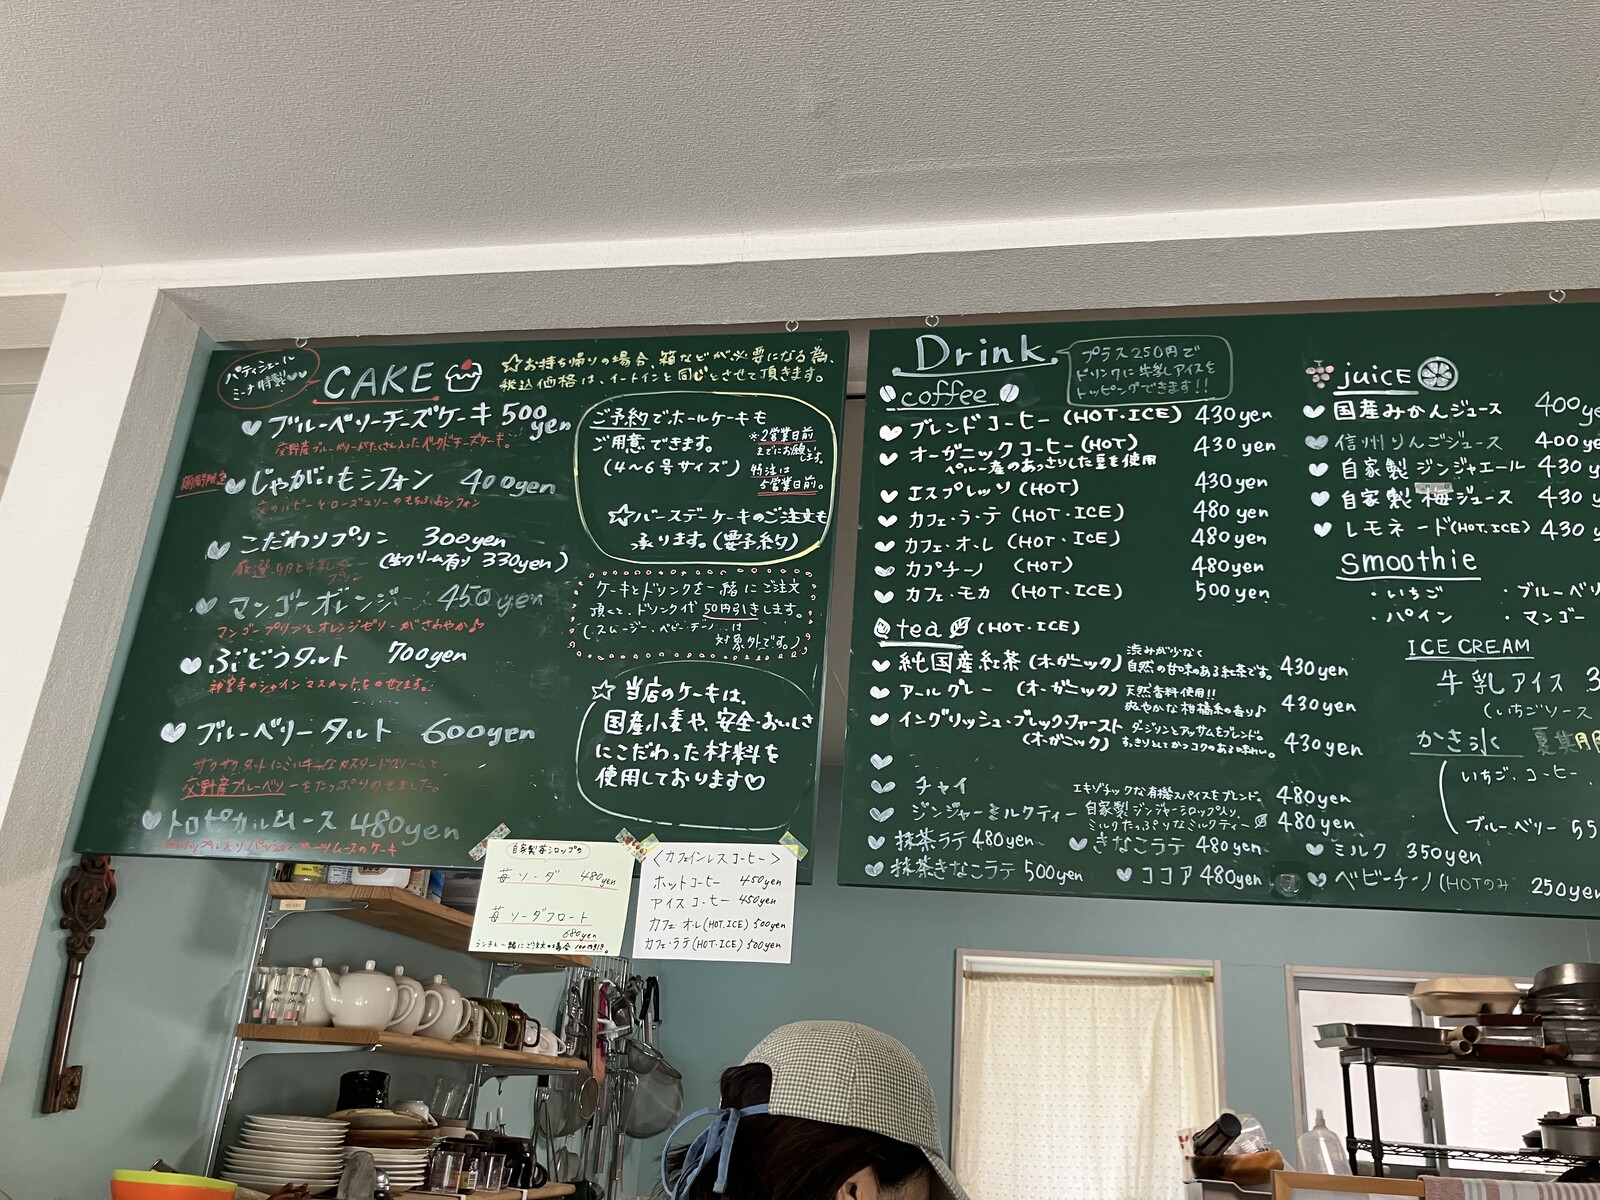 パティシエール
ミーナ特製
CAKE
☆お持ち帰りの場合、箱などが必要になる為、
税込価格は、イートインと同じとさせて頂きます。
ブルーベリーチーズケーキ 500yen
交野産ブルーベリーがたくさん入ったベイクドチーズケーキ。
期間限定
じゃがいもシフォン 400yen
こだわりプリン 300yen
(生クリーム有り 330yen)
マンゴーオレンジ 450yen
マンゴープリンとオレンジゼリーがさわやか♪
ぶどうタルト 700yen
神宮寺のシャインマスカットをのせてます。
ブルーベリータルト 600yen
サクサクタルトにミルキーなカスタードクリームと
交野産ブルーベリーをたっぷりのせました。
トロピカルムース 480yen
ご予約でホールケーキも
ご用意できます。
(4〜6号サイズ)
※2営業日前
までにお願いします。
特注は
5営業日前。
☆バースデーケーキのご注文も
承ります。(要予約)
ケーキとドリンクを一緒にご注文
頂くと、ドリンク代50円引きします。
(スムージー、ベビーチーノは
対象外です。)
☆当店のケーキは、
国産小麦や、安全・おいしさ
にこだわった材料を
使用しております♡
自家製苺シロップの
苺ソーダ 480yen
苺ソーダフロート
680yen
ランチと一緒にご注文の場合100円引き。
〈カフェインレスコーヒー〉
ホットコーヒー 450yen
アイスコーヒー 450yen
カフェオレ(HOT.ICE) 500yen
カフェ・ラテ(HOT.ICE) 500yen
Drink
プラス250円で
ドリンクに牛乳アイスを
トッピングできます!!
coffee
ブレンドコーヒー(HOT・ICE) 430yen
オーガニックコーヒー(HOT) 430yen
ペルー産のあっさりした豆を使用
エスプレッソ(HOT) 430yen
カフェ・ラ・テ(HOT・ICE) 480yen
カフェ・オ・レ(HOT・ICE) 480yen
カプチーノ(HOT) 480yen
カフェ・モカ(HOT・ICE) 500yen
tea (HOT・ICE)
純国産紅茶(オーガニック) 渋みが少なく
自然の甘味のある紅茶です。 430yen
アールグレー(オーガニック) 天然香料使用!!
爽やかな柑橘系の香り♪ 430yen
イングリッシュ・ブレックファースト ダージリンとアッサムをブレンド。
(オーガニック) あっさりとしてかつコクのある味わい。 430yen
チャイ エキゾチックな有機スパイスをブレンド。 480yen
ジンジャーミルクティー 自家製ジンジャーシロップ入り、
ミルクたっぷりなミルクティー 480yen
抹茶ラテ 480yen
きなこラテ 480yen
ミルク 350yen
抹茶きなこラテ 500yen
ココア 480yen
ベビーチーノ(HOTのみ 250yen
juice
国産みかんジュース 400ye
信州りんごジュース 400ye
自家製ジンジャエール 430 y
自家製梅ジュース 430 y
レモネード(HOT.ICE) 430 y
smoothie
・いちご ・ブルーベリ
・パイン ・マンゴー
ICE CREAM
牛乳アイス 3
(いちごソース
かき氷 夏期
いちご、コーヒー
ブルーベリー 55